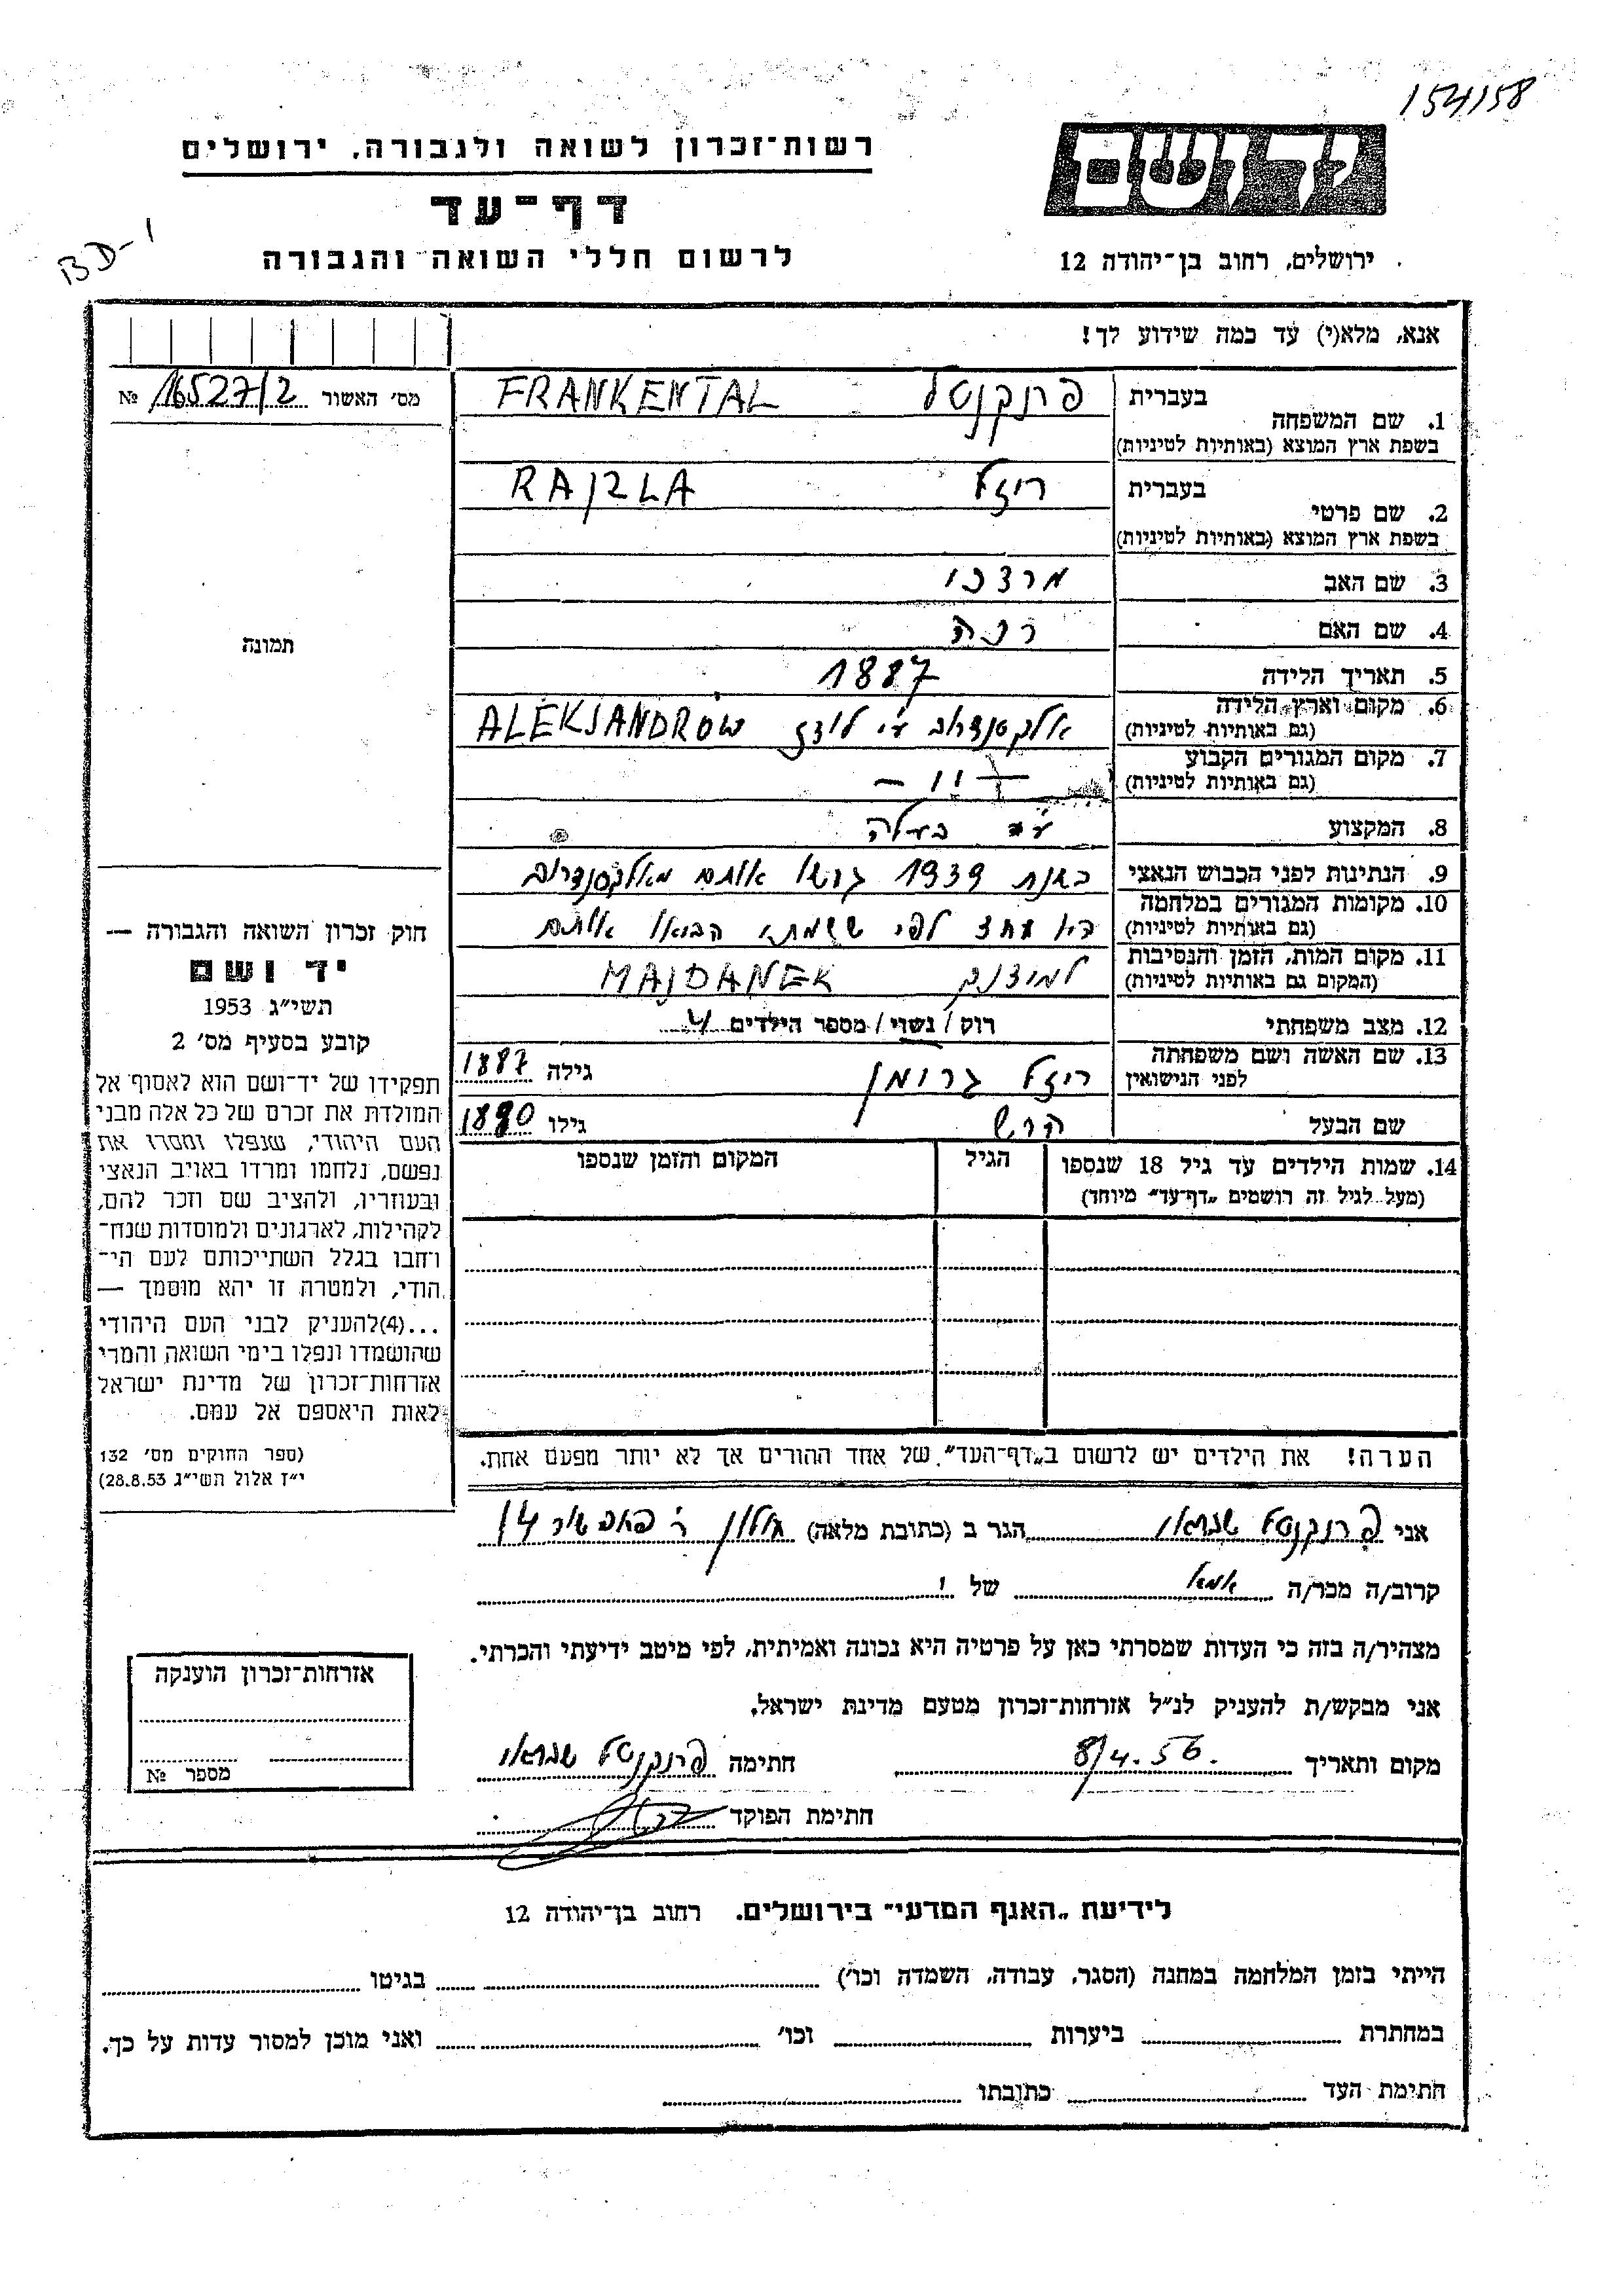 154158
יד ושם
רשות־זכרון לשואה ולגבורה, ירושלים
דף־עד
לרשום חללי השואה והגבורה
ירושלים, רחוב בן־יהודה 12
BD-1
אנא, מלא(י) עד כמה שידוע לך!
מס׳ האשור 16527/2 №
1. שם המשפחה בעברית פרנקנטל FRANKENTAL
בשפת ארץ המוצא (באותיות לטיניות)
2. שם פרטי בעברית ריזל RAJZLA
בשפת ארץ המוצא (באותיות לטיניות)
3. שם האב מרדכי
4. שם האם
5. תאריך הלידה 1887
6. מקום וארץ הלידה אלכסנדרוב ע״י לודז ALEKSANDRÓW
(גם באותיות לטיניות)
7. מקום המגורים הקבוע — ״ —
(גם באותיות לטיניות)
8. המקצוע
9. הנתינות לפני הכבוש הנאצי בשנת 1939 גרשו אותם מאלכסנדרוב
10. מקומות המגורים במלחמה לפי ששמתי הביאו אותם
(גם באותיות לטיניות)
11. מקום המות, הזמן והנסיבות MAJDANEK
(המקום גם באותיות לטיניות)
12. מצב משפחתי רווק / נשוי / מספר הילדים 4
13. שם האשה ושם משפחתה ריזל גרומן גילה 1887
לפני הנישואין
שם הבעל הרש גילו 1880
14. שמות הילדים עד גיל 18 שנספו הגיל המקום והזמן שנספו
(מעל לגיל זה רושמים „דף־עד״ מיוחד)
הערה! את הילדים יש לרשום ב„דף־העד״ של אחד ההורים אך לא יותר מפעם אחת.
תמונה
חוק זכרון השואה והגבורה —
יד ושם
תשי״ג 1953
קובע בסעיף מס׳ 2
תפקידו של יד־ושם הוא לאסוף אל
המולדת את זכרם של כל אלה מבני
העם היהודי, שנפלו ומסרו את
נפשם, נלחמו ומרדו באויב הנאצי
ובעוזריו, ולהציב שם וזכר להם,
לקהילות, לארגונים ולמוסדות שנח־
רבו בגלל השתייכותם לעם הי־
הודי, ולמטרה זו יהא מוסמך —
...(4)להעניק לבני העם היהודי
שהושמדו ונפלו בימי השואה והמרי
אזרחות־זכרון של מדינת ישראל
לאות היאספם אל עמם.
(ספר החוקים מס׳ 132
י״ז אלול תשי״ג 28.8.53)
אני פרנקנטל הגר ב (כתובת מלאה) חולון 14
קרוב/ה מכר/ה אמא של
מצהיר/ה בזה כי העדות שמסרתי כאן על פרטיה היא נכונה ואמיתית, לפי מיטב ידיעתי והכרתי.
אני מבקש/ת להעניק לנ״ל אזרחות־זכרון מטעם מדינת ישראל.
מקום ותאריך 8/4.56. חתימה פרנקנטל
חתימת הפוקד
אזרחות־זכרון הוענקה
מספר №
לידיעת „האגף המדעי״ בירושלים. רחוב בן־יהודה 12
הייתי בזמן המלחמה במחנה (הסגר, עבודה, השמדה וכו׳) בגיטו
במחתרת ביערות וכו׳ ואני מוכן למסור עדות על כך.
חתימת העד כתובתו